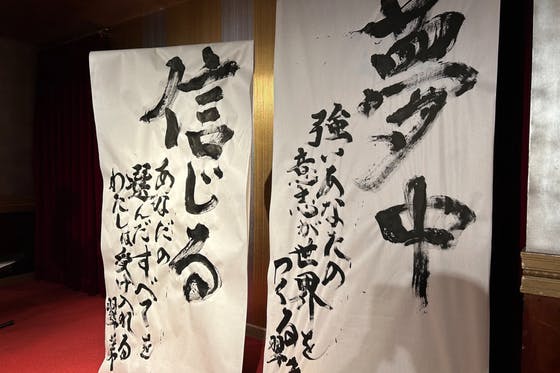 夢中
強いあなたの
意志が世界を
つくる 翠
信じる
あなたの
選んだすべてを
わたしは受け入れる 翠